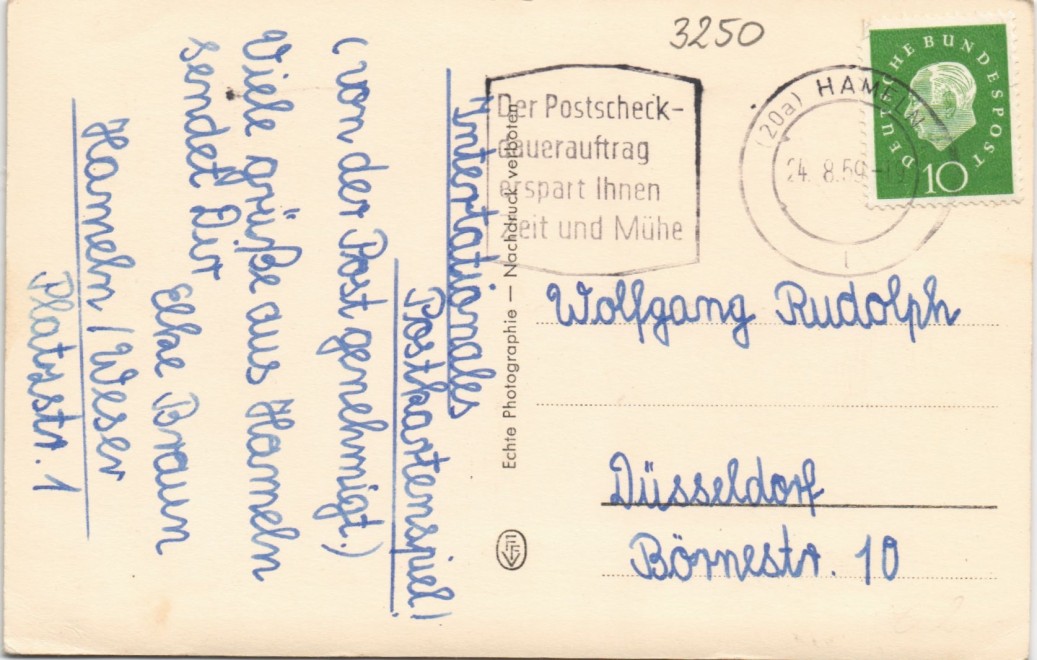 Intertationales
Postkartenspiel!
(von der Post genehmigt.)
Viele grüße aus Hameln
sendet Dir
Elke Braun
Hameln / Weser
Platzstr. 1
Echte Photographie — Nachdruck verboten
3250
Der Postscheck-
dauerauftrag
erspart Ihnen
Zeit und Mühe
(20a) HAMELN
24. 8.59.-19
1
DEUTSCHE BUNDESPOST
10
Wolfgang Rudolph
Düsseldorf
Börnestr. 10